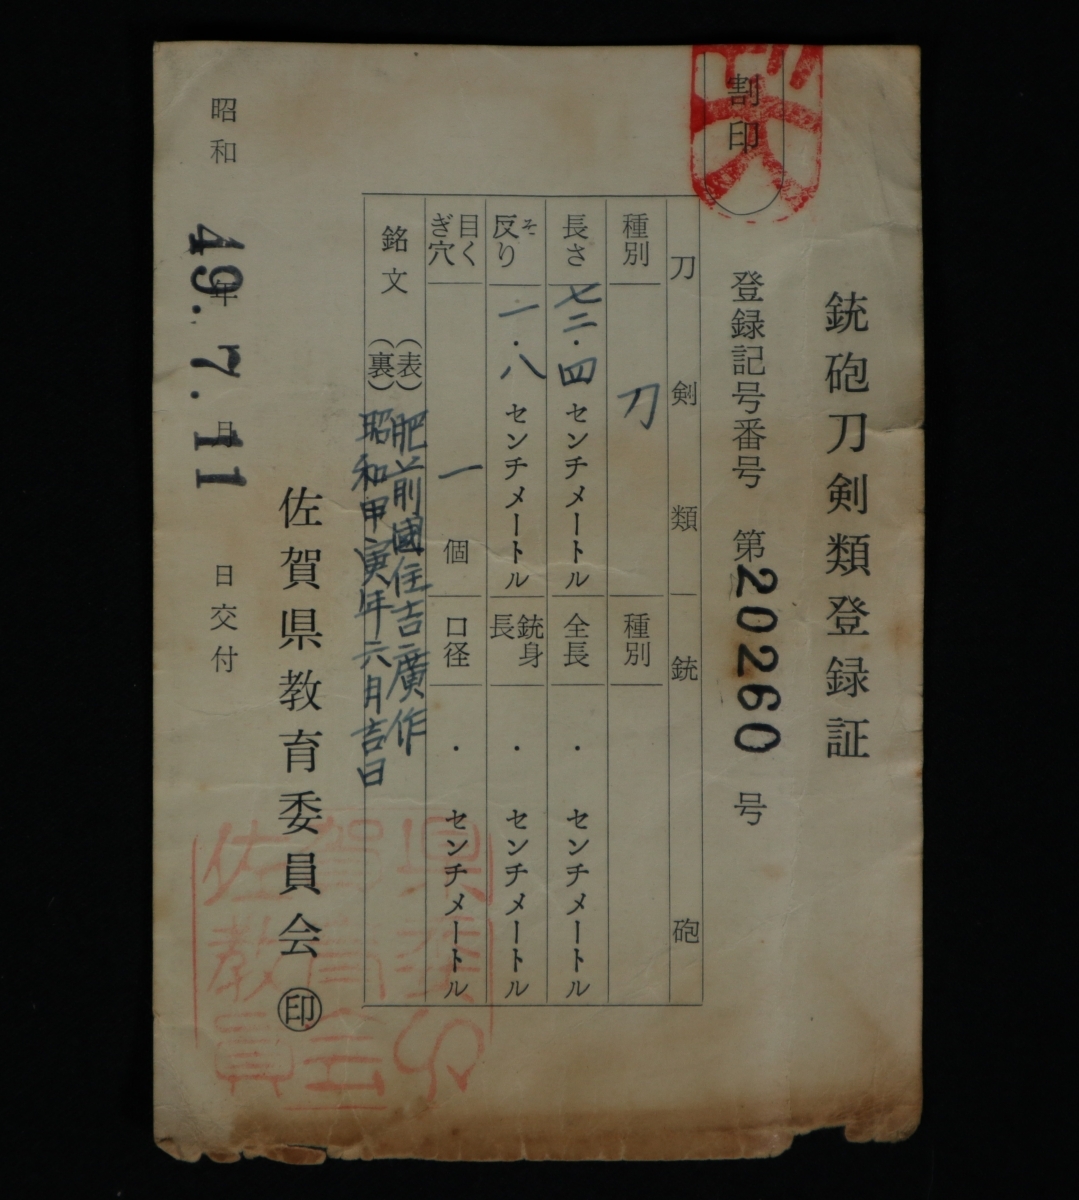 銃砲刀剣類登録証
割印
登録記号番号 第20260号
刀剣類
銃砲
種別 刀
長さ 七二・四センチメートル
反り そ 一・八センチメートル
目くぎ穴 一個
種別
全長 ・ センチメートル
銃身長 ・ センチメートル
口径 ・ センチメートル
銘文 (表) 肥前國住吉廣作
(裏) 昭和甲寅年六月吉日
佐賀県教育委員会 印
昭和49年7月11日交付
佐賀県教育委員会